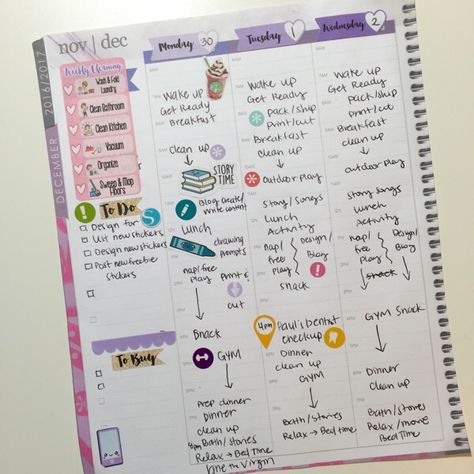 2016/2017
DECEMBER
nov | dec
Weekly Cleaning
Wash & Fold
Laundry
Clean Bathroom
Clean Kitchen
Vacuum
Organize
Sweep & Mop
Floors
To Do
Design for S
List new stickers
Design new stickers
Post new freebie
stickers
To Buy
Monday 30
wake up
Get Ready
Breakfast
clean up
STORY
TIME
Blog create/
write content
lunch
drawing
prompts
nap/free
play
Print &
cut
Snack
GYM
prep dinner
Dinner
clean up
Bath/stories
Relax → Bed Time
Jane the Virgin
Tuesday 1
wake up
Get Ready
pack/ship
print/cut
Breakfast
clean up
outdoor play
Story/Songs
Lunch
Activity
nap/
free
play
Design/
Blog
snack
4pm
Paul's Dentist
checkup
Dinner
clean up
GYM
Bath/stories
Relax → Bed time
Wednesday 2
wake up
Get Ready
Pack/ship
print/cut
Breakfast
clean up
outdoor play
story songs
lunch
Activity
nap/
free
play
Design/
Blog
snack
GYM Snack
Dinner
clean up
Bath/stories
Relax/movie
Bed Time